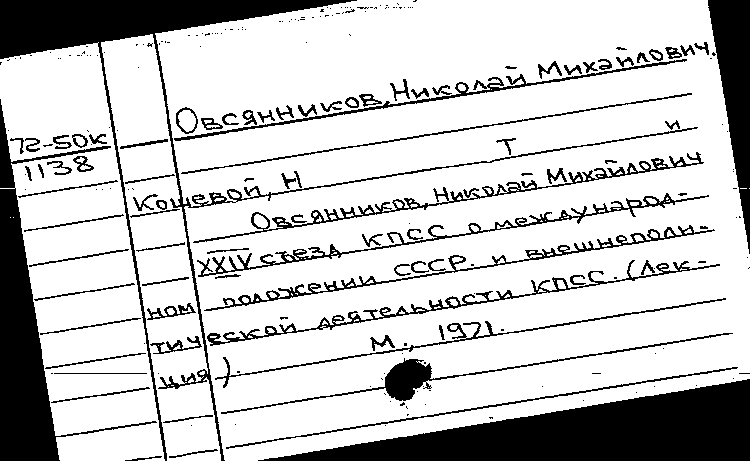 Овсянников, Николай Михайлович.
72-50к
1138
Кошевой, Н Т и
Овсянников, Николай Михайлович
XXIV съезд КПСС о международ-
ном положении СССР. и внешнеполи-
тической деятельности КПСС. (Лек-
ция). М., 1971.